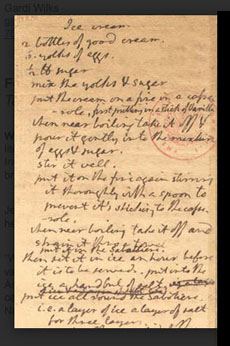 Ice cream.
2 bottles of good cream.
6. yolks of eggs.
1/2 lb sugar
mix the yolks & sugar
put the cream on a fire in a casse-
-role, first putting in a stick of Vanilla.
when near boiling take it off &
pour it gently into the mixture
of eggs & sugar.
stir it well.
put it on the fire again stirring
it thoroughly with a spoon to
prevent it's sticking to the casse-
-role.
when near boiling take it off and
strain it
put it in the Sabottiere
then set it in ice an hour before
it is to be served. put into the
ice a handful of salt
put ice all round the Sabottiere
i.e. a layer of ice a layer of salt
for three layers.